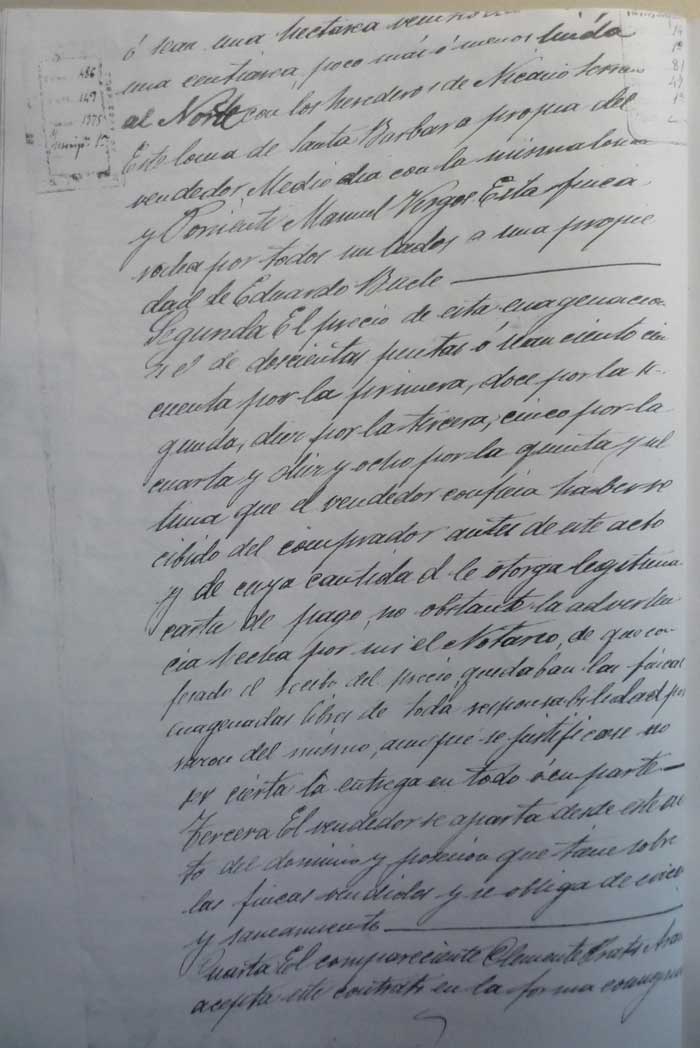 486
149
1375
Inscripn 1ª
14
1º
81
49
1ª
ó sean una hectarea
una centiarea, poco más ó menos linda
al Norte con los herederos de Nicasio Serran
Este loma de Santa Barbara propia del
vendedor, Medio dia con la misma loma
y Poniente Manuel Vargas Esta finca
rodea por todos sus lados a una propie
dad de Eduardo Bucle
Segunda El precio de esta enagenacio
n es de doscientas pesetas ó sean ciento cin
cuenta por la primera, doce por la se-
gunda, diez por la tercera, cinco por la
cuarta y diez y ocho por la quinta y ul
tima que el vendedor confiesa haber re
cibido del comprador antes de este acto
y de cuya cantidad le otorga legitima
carta de pago, no obstante la adverten
cia hecha por mi el Notario, de que con
fesado el recibo del precio, quedaban las fincas
enagenadas libres de toda responsabilidad por
razon del mismo, aunque se justificase no
ser cierta la entrega en todo ó en parte
Tercera El vendedor se aparta desde este ac
to del dominio y posesion que tiene sobre
las fincas vendidas y se obliga de evicc
y saneamiento
Cuarta El compareciente Clemente
acepta este contrato en la forma consign